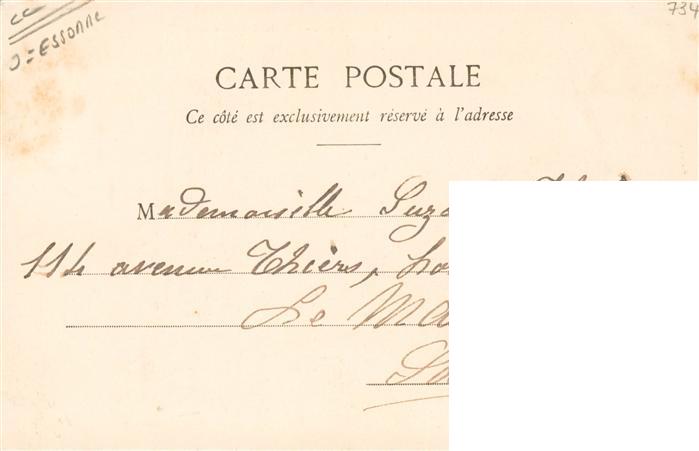 J = ESSONNE
734
CARTE POSTALE
Ce côté est exclusivement réservé à l'adresse
Mademoiselle
114 avenue Thiers,
Le